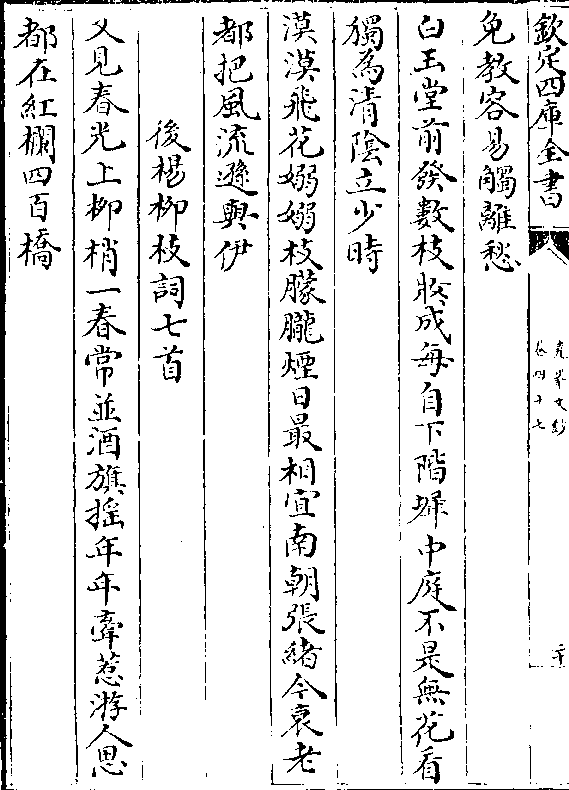 欽定四庫全書
堯峯文鈔
卷四十七
二十
免教容易觸離愁
白玉堂前發數枝妝成每自下階墀中庭不是無花看
獨為清陰立少時
漠漠飛花嫋嫋枝朦朧煙日最相宜南朝張緒今衰老
都把風流遜與伊
後楊柳枝詞七首
又見春光上柳梢一春常並酒旗揺年年牽惹游人思
都在紅欄四百橋